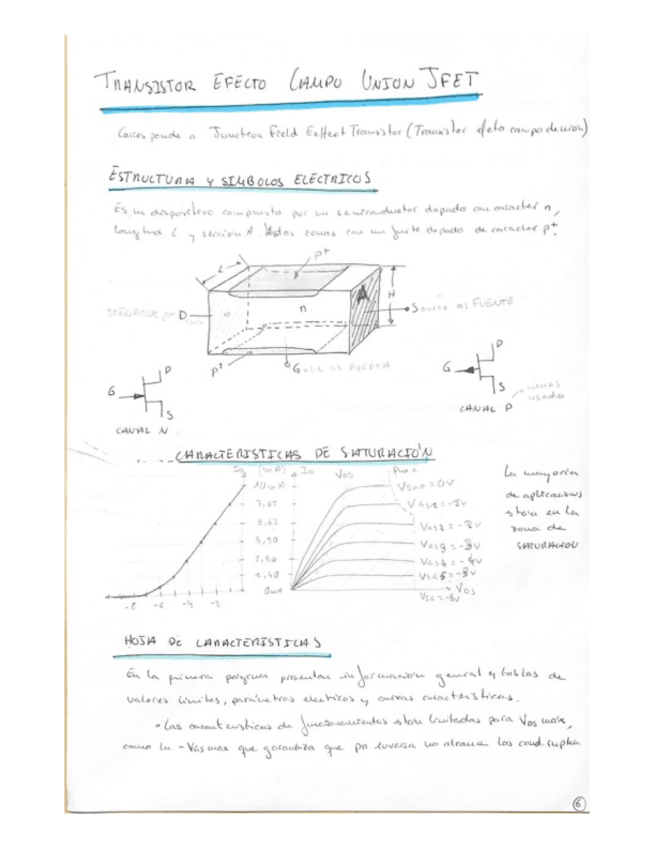 TRANSISTOR EFECTO CAMPO UNION JFET
Corresponde a Junction Field Eeffect Transistor (Transistor efeto campo de union)
ESTRUCTURA Y SIMBOLOS ELECTRICOS
Es un dispositivo compuesto por un semiconductor dopado con caracter n,
longitud L y sección A. dos zonas con un fuerte dopado de caracter p+.
L
p+
A
H
D
n
Source as FUENTE
p+
Gate as PUERTA
G
D
S
CANAL N
G
D
S
CANAL P
menos
usado
CARACTERISTICAS DE SATURACIÓN
ID (mA)
ID
VDS
10mA
7,65
5,62
3,90
2,50
1,40
0mA
-8 -6 -4 -2
VGS1=-1V
VGS2=-2V
VGS3=-3V
VGS4=-4V
VGS5=-5V
VDS
La mayoria
de aplicaciones
estan en la
zona de
SATURACION
HOJA DE CARACTERISTICAS
En la primera pagina presentan informacion general y tablas de
valores limites, parámetros electricos y curvas caracteristicas.
• Las caracteristicas de funcionamientos estan limitadas para VDS max,
como la -VGS max que garantiza que pn inversa no alcance las cond. ruptura
6